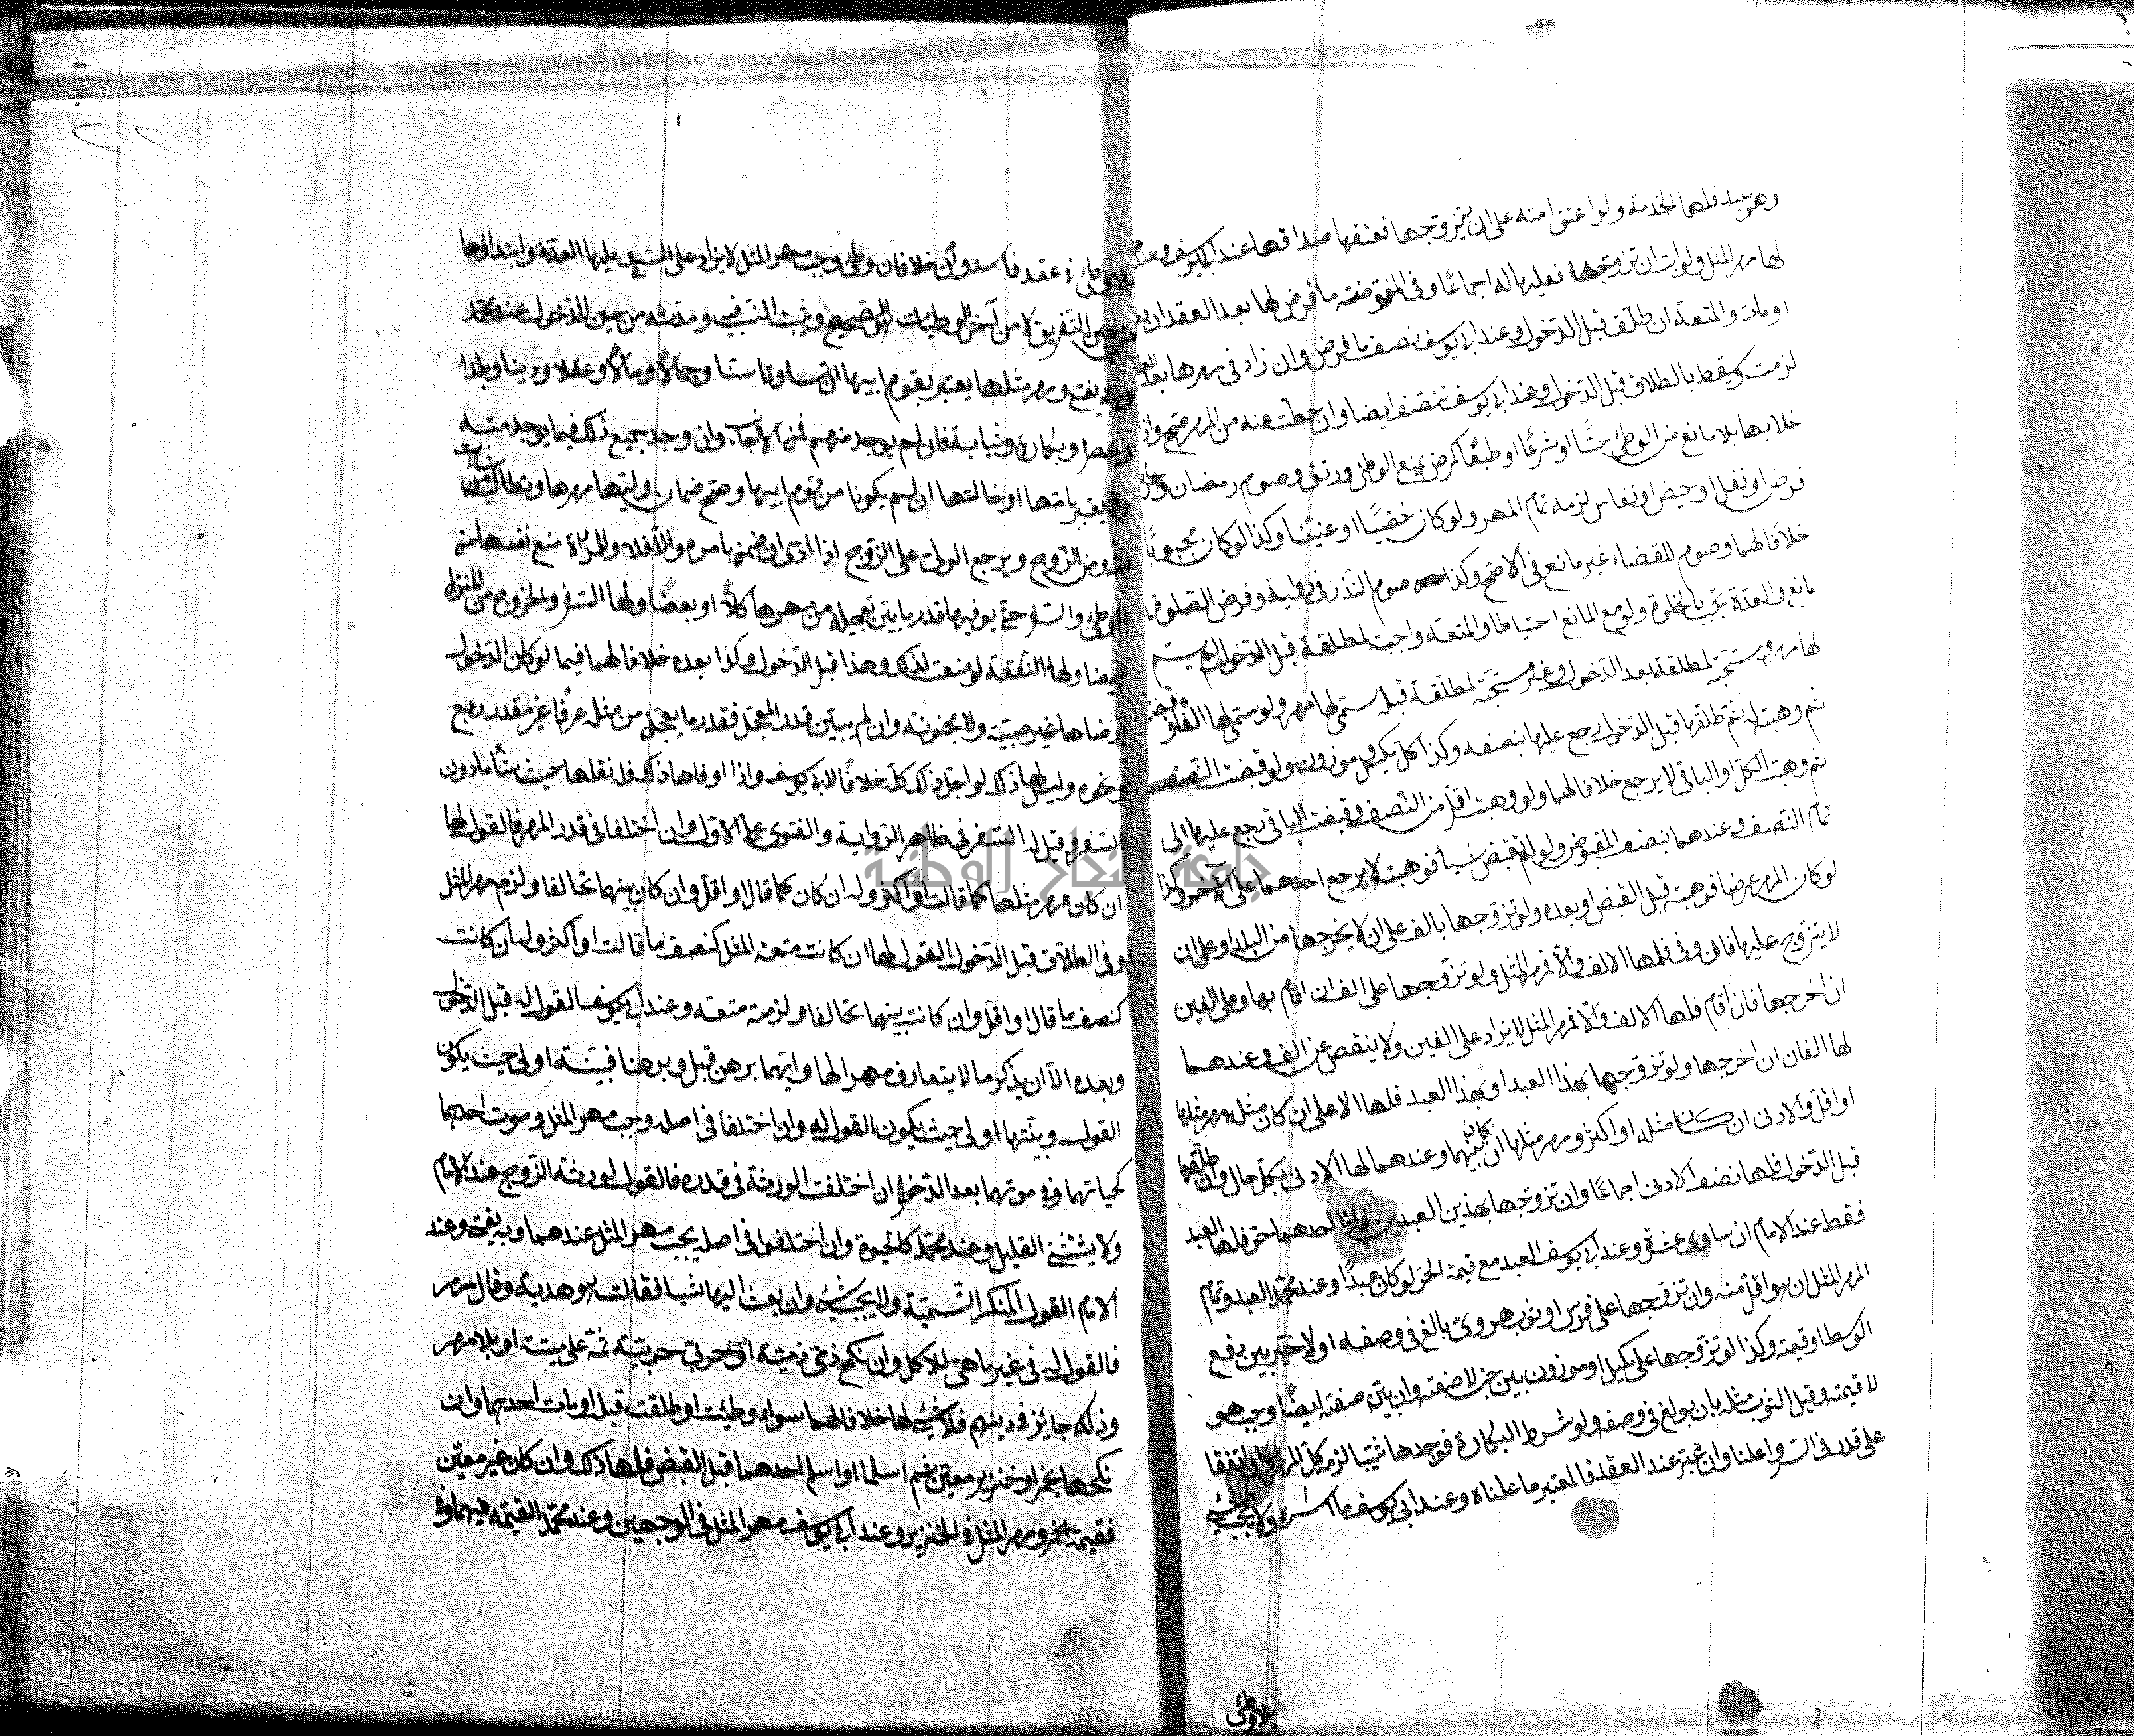 وهو عبد فلها الخدمة ولو اعتق امته على ان يتزوجها فعتقها صداقها عند ابي يوسف وعندهما
لها مهر المثل ولو ابت ان تزوجها فعليها له اجماعًا وفي المفوضة ما فرض لها بعد العقد ان
او مات والمتعة ان طلق قبل الدخول وعند ابي يوسف نصف ما فرض وان زاد في مهرها بعد العقد
لزمت ويسقط بالطلاق قبل الدخول وعند ابي يوسف تتنصف ايضا وان حطت عنه من المهر صح واذا
خلا بها بلا مانع من الوطئ حسًّا او شرعًا او طبعًا كمرض يمنع الوطئ ورتق وصوم رمضان واحرام
فرض او نفل او حيض او نفاس لزمه تمام المهر ولو كان خصيًّا او عنينا وكذا لو كان مجبوبًا
خلافًا لهما وصوم القضاء غير مانع في الاصح وكذا صوم النذر في رواية وفرض الصلوة
مانع والعدة تجب بالخلوة ولو مع المانع احتياطا والمتعة واجبة لمطلقة قبل الدخول لم يسم
لها مهر ومستحبة لمطلقة بعد الدخول وغير مستحبة لمطلقة قبله سمي لها مهر ولو سمى لها الفًا وقبضت
ثم وهبته له ثم طلقها قبل الدخول رجع عليها بنصفه وكذا كل مكيل وموزون ولو قبضت النصف
ثم وهبت الكل او الباقي لا يرجع خلافا لهما ولو وهبت اقل من النصف وقبضت الباقي رجع عليها الى
تمام النصف وعندهما بنصف المقبوض ولو لم تقبض شيا فوهبته لا يرجع احدهما على الآخر وكذا
لو كان المهر عرضا فوهبته قبل القبض او بعده ولو تزوجها بالف على ان لا يخرجها من البلد او على ان
لا يتزوج عليها فان وفى فلها الالف والا فمهر المثل ولو تزوجها على الف ان اقام بها وعلى الفين
ان اخرجها فان اقام فلها الالف والا فمهر المثل لا يزاد على الفين ولا ينقص عن الف وعندهما
لها الفان ان اخرجها ولو تزوجها بهذا العبد او بهذا العبد فلها الاعلى ان كان مثل مهر مثلها
او اقل والادنى ان كان مثله او اكثر ومهر مثلها ان كان بينهما وعندهما لها الادنى بكل حال وان طلقها
قبل الدخول فلها نصف الادنى اجماعًا وان تزوجها بهذين العبدين فاذا احدهما حر فلها العبد
فقط عند الامام ان ساوى عشرة وعند ابي يوسف العبد مع قيمة الحر لو كان عبدًا وعند محمد العبد وتمام
المهر المثل ان هو اقل منه وان تزوجها على فرس او ثوب هروى بالغ في وصفه اولا خير بين دفع
الوسط او قيمته وكذا لو تزوجها على مكيل او موزون بين جنسه لا صفته وان بين صفته ايضًا وجب هو
لا قيمته وقيل الثوب مثله بان بولغ في وصفه ولو شرط البكارة فوجدها ثيبا لزمه كل المهر وان اتفقا
على قدر في السر واعلنا وان غيره عند العقد فالمعتبر ما اعلناه وعند ابي يوسف ما اسراه ولا يجب شئ
بلا وطئ
بلا وطئ في عقد فاسد وان خلا فان وطئ وجب مهر المثل لا يزاد على المسمى وعليها العدة وابتداؤها
من حين التفريق لا من آخر الوطئات هو الصحيح ويثبت النسب فيه ومدته من حين الدخول عند محمد
وبه يفتى ومهر مثلها يعتبر بقوم ابيها ان تساوتا سنا وجمالًا ومالًا وعقلا ودينا وبلدا
وعصرا وبكارة وثيابة فان لم يوجد منهم فمن الاجانب وان وجد جميع ذلك فيما يوجد منه
ولا يعتبر بامها او خالتها ان لم يكونا من قوم ابيها وصح ضمان وليها مهرها وتطالب من شاءت
منه ومن الزوج ويرجع الولي على الزوج اذا ادى ان ضمن بامره والا فلا وللمراة منع نفسها من
الوطئ والسفر حتى يوفيها قدر ما بين تعجيله من مهرها كلًّا او بعضًا ولها السفر والخروج من المنزل
ايضا ولها النفقة لو منعت لذلك وهذا قبل الدخول وكذا بعده خلافا لهما فيما لو كان الدخول
برضاها غير صبية ولا مجنونة وان لم يبين قدر المعجل فقدر ما يعجل من مثله عرفًا غير مقدر بربع
ونحوه وليس لها ذلك لو اجل ذلك كله خلافًا لابي يوسف واذا اوفاها ذلك فله نقلها حيث شأ ما دون
السفر وقيل له السفر في ظاهر الرواية والفتوى على الاول وان اختلفا في قدر المهر فالقول لها
ان كان مهر مثلها كما قالت او اكثر وله ان كان كما قال او اقل وان كان بينهما تحالفا ولزم مهر المثل
وفي الطلاق قبل الدخول القول لها ان كانت متعة المثل كنصف ما قالت او اكثر وله ان كانت
كنصف ما قال او اقل وان كانت بينهما تحالفا ولزمت متعة وعند ابي يوسف القول له قبل الدخول
وبعده الا ان يذكر ما لا يتعارف مهرا لها وايهما برهن قبل وبرهنا فبينته اولى حيث يكون
القول وبينتها اولى حيث يكون القول له وان اختلفا في اصله وجب مهر المثل وموت احدهما
كحياتهما وفي موتهما بعد الدخول ان اختلفت الورثة في قدره فالقول لورثة الزوج عند الامام
ولا يستثنى القليل وعند محمد كالحيوة وان اختلفوا في اصله يجب مهر المثل عندهما وبه يفتى وعند
الامام القول لمنكر التسمية ولا يجب شئ وان بعث اليها شيا فقالت هو هدية وقال مهر
فالقول له في غير ما هئ للاكل وان نكح ذمى ذمية او حربى حربية ثمة على ميتة او بلا مهر
وذلك جائز في دينهم فلا شئ لها خلافا لهما سواء وطئت او طلقت قبله او مات احدهما وان
نكحها بخمر او خنزير معين ثم اسلما او اسلم احدهما قبل القبض فلها ذلك وان كان غير معين
فقيمة الخمر ومهر المثل في الخنزير وعند ابي يوسف مهر المثل في الوجهين وعند محمد القيمة فيهما وفي